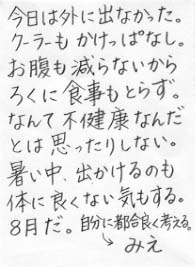 今日は外に出なかった。
クーラーもかけっぱなし。
お腹も減らないから
ろくに食事もとらず。
なんて不健康なんだ
とは思ったりしない。
暑い中、出かけるのも
体に良くない気もする。
8月だ。自分に都合良く考える。
みえ